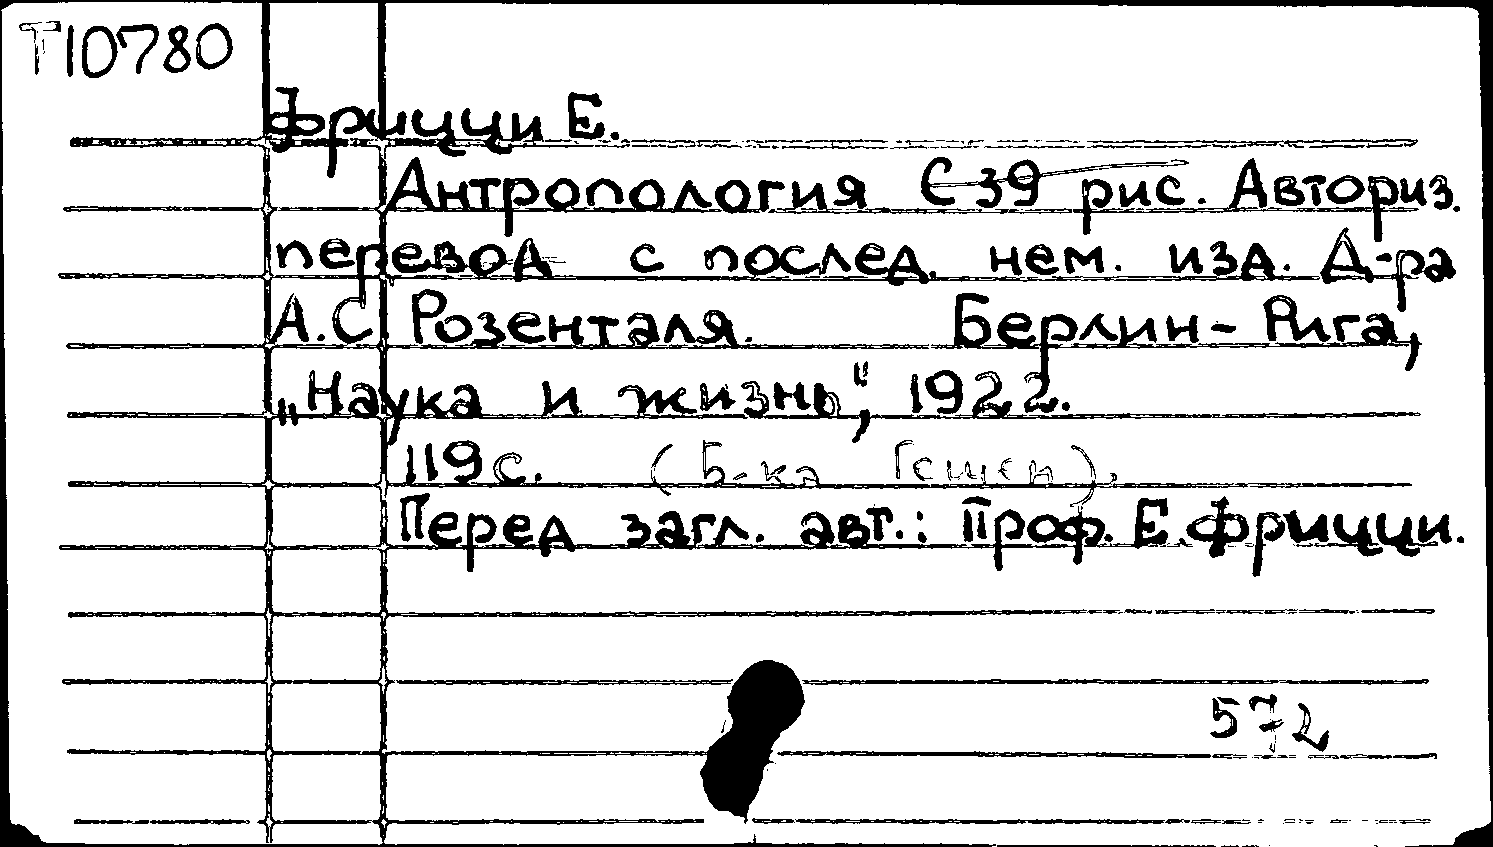 Т10780
Фрицци Е.
Антропология С 39 рис. Авториз.
перевод с послед. нем. изд. Д-ра
А.С. Розенталя. Берлин-Рига,
„Наука и жизнь", 1922.
119 с. (Б-ка Гешен).
Перед загл. авт.: Проф. Е. Фрицци.
572